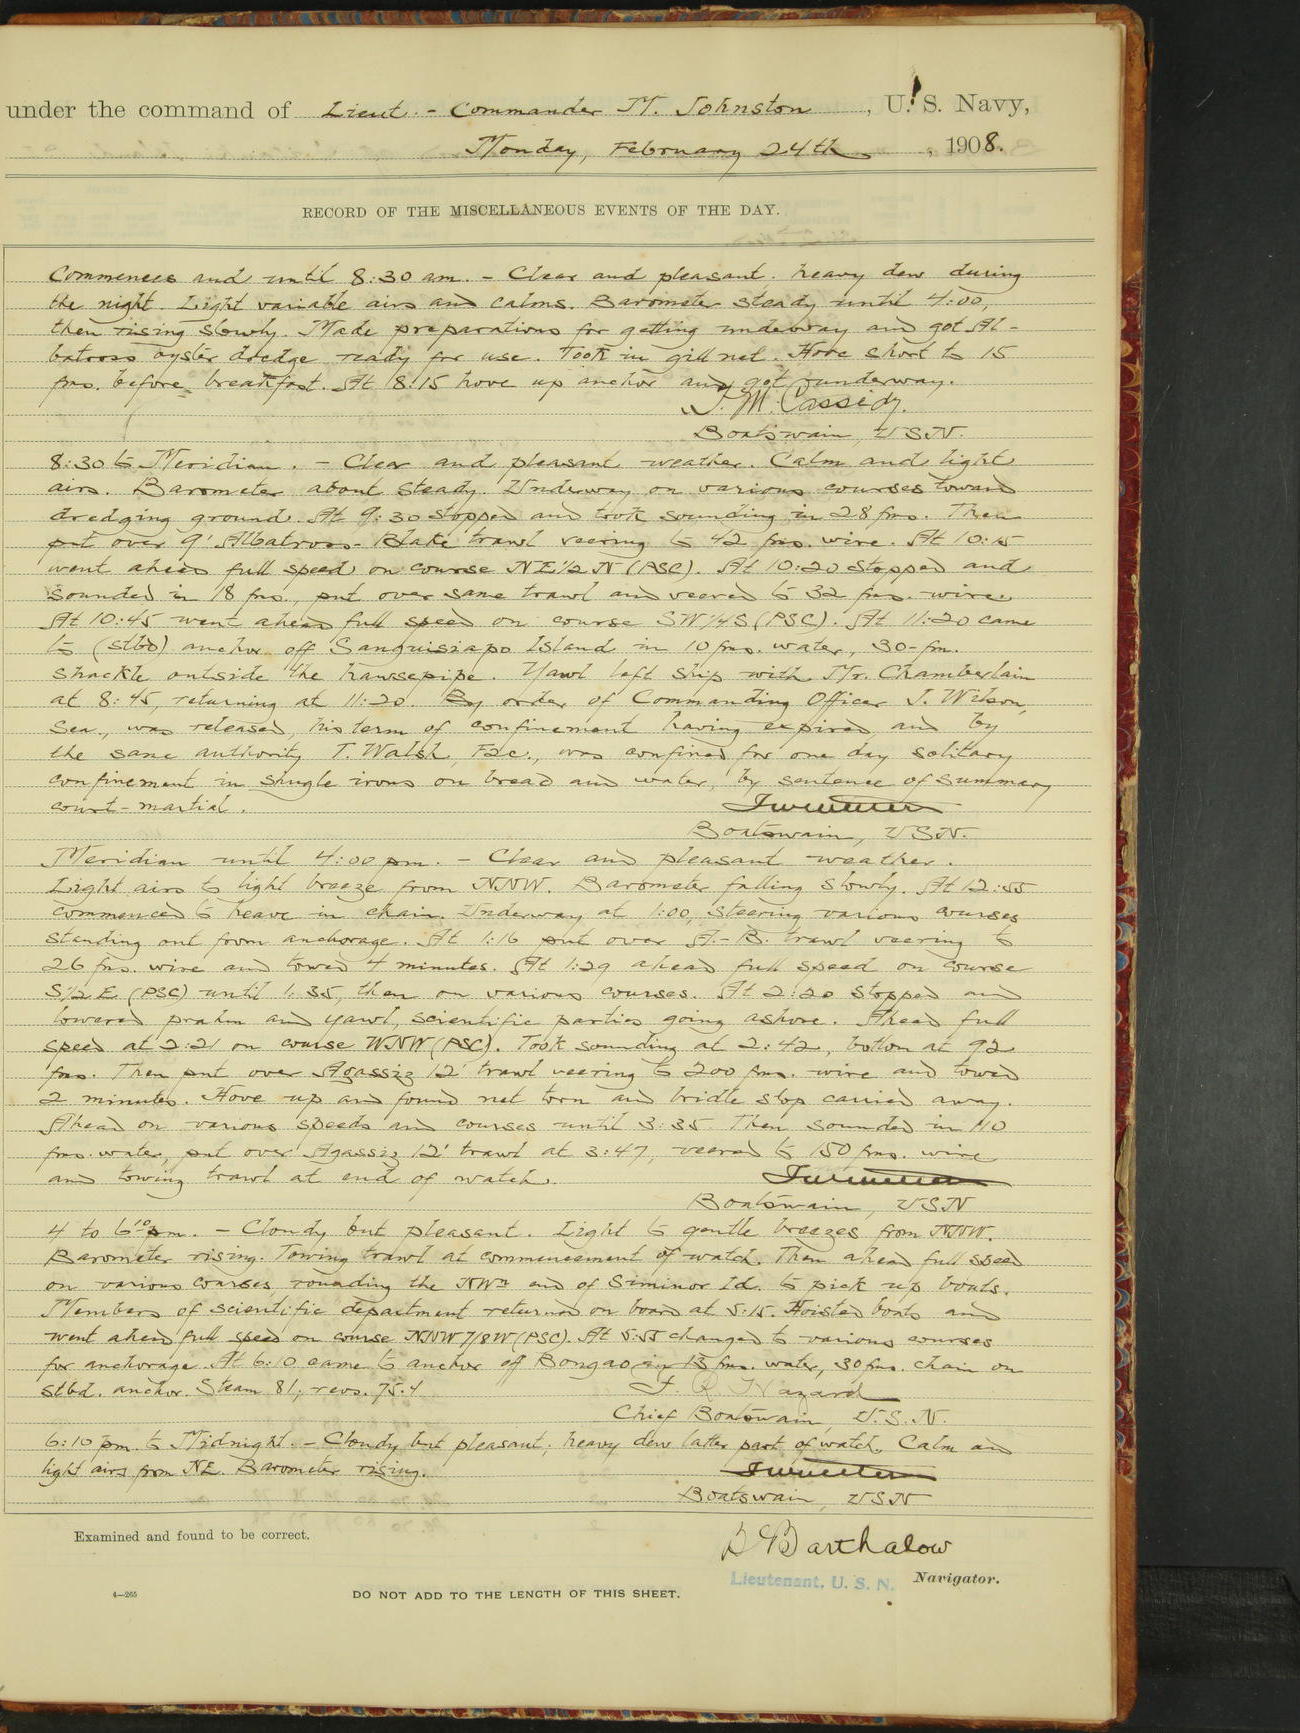 under the command of Lieut.-Commander M. Johnston, U. S. Navy,
Monday, February 24th, 1908.
RECORD OF THE MISCELLANEOUS EVENTS OF THE DAY.
Commences and until 8:30 am. - Clear and pleasant. heavy dew during
the night. Light variable airs and calms. Barometer steady until 4:00,
then rising slowly. Made preparations for getting underway and got Al-
batross oyster dredge ready for use. Took in gill net. Hove short to 15
fms. before breakfast. At 8:15 hove up anchor and got underway.
J. M. Cassedy.
Boatswain, USN.
8:30 to Meridian. - Clear and pleasant weather. Calm and light
airs. Barometer about steady. Underway on various courses toward
dredging ground. At 9:30 stopped and took sounding in 28 fms. Then
put over 9' Albatross-Blake trawl veering to 42 fms. wire. At 10:15
went ahead full speed on course NE1/2N (PSC). At 10:20 stopped and
sounded in 18 fms., put over same trawl and veered to 32 fms. wire.
At 10:45 went ahead full speed on course SW1/4S (PSC). At 11:20 came
to (stbd) anchor off Sanguisiapo Island in 10 fms. water, 30-fm.
shackle outside the hawsepipe. Yawl left ship with Mr. Chamberlain
at 8:45, returning at 11:20. By order of Commanding Officer J. Wilson,
Sea., was released, his term of confinement having expired, and by
the same authority T. Walsh, F2c., was confined for one day solitary
confinement in single irons on bread and water, by sentence of summary
court-martial.
Boatswain, USN.
Meridian until 4:00 pm. - Clear and pleasant weather.
Light airs to light breeze from NNW. Barometer falling slowly. At 12:55
commenced to heave in chain. Underway at 1:00, steering various courses
standing out from anchorage. At 1:16 put over A.-B. trawl veering to
26 fms. wire and towed 4 minutes. At 1:29 ahead full speed on course
S1/2E (PSC) until 1:35, then on various courses. At 2:20 stopped and
lowered prahm and yawl, scientific parties going ashore. Ahead full
speed at 2:21 on course WNW (PSC). Took sounding at 2:42, bottom at 92
fms. Then put over Agassiz 12' trawl veering to 200 fms. wire and towed
2 minutes. Hove up and found net torn and bridle stop carried away.
Ahead on various speeds and courses until 3:35. Then sounded in 110
fms. water, put over Agassiz 12' trawl at 3:47, veered to 150 fms. wire
and towing trawl at end of watch.
Boatswain, USN
4 to 6:10 pm. - Cloudy but pleasant. Light to gentle breezes from NNW.
Barometer rising. Towing trawl at commencement of watch. Then ahead full speed
on various courses, rounding the NW'n end of Siminor Id. to pick up boats.
Members of scientific department returned on board at 5:15. Hoisted boats and
went ahead full speed on course NNW7/8W (PSC). At 5:55 changed to various courses
for anchorage. At 6:10 came to anchor off Bongao in 13 fms. water, 30 fms. chain on
stbd. anchor. Steam 81, revs. 75.4
F. R. Hazard
Chief Boatswain, U.S.N.
6:10 pm. to Midnight. - Cloudy but pleasant; heavy dew latter part of watch. Calm and
light airs from NE. Barometer rising.
Boatswain, USN
Examined and found to be correct.
B Barthalow
Lieutenant, U. S. N. Navigator.
4—265 DO NOT ADD TO THE LENGTH OF THIS SHEET.